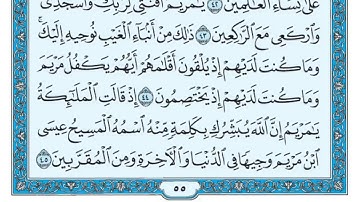 عَلَىٰ نِسَآءِ ٱلْعَٰلَمِينَ ٤٢ يَٰمَرْيَمُ ٱقْنُتِى لِرَبِّكِ وَٱسْجُدِى
وَٱرْكَعِى مَعَ ٱلرَّٰكِعِينَ ٤٣ ذَٰلِكَ مِنْ أَنۢبَآءِ ٱلْغَيْبِ نُوحِيهِ إِلَيْكَ ۚ
وَمَا كُنتَ لَدَيْهِمْ إِذْ يُلْقُونَ أَقْلَٰمَهُمْ أَيُّهُمْ يَكْفُلُ مَرْيَمَ
وَمَا كُنتَ لَدَيْهِمْ إِذْ يَخْتَصِمُونَ ٤٤ إِذْ قَالَتِ ٱلْمَلَٰٓئِكَةُ
يَٰمَرْيَمُ إِنَّ ٱللَّهَ يُبَشِّرُكِ بِكَلِمَةٍ مِّنْهُ ٱسْمُهُ ٱلْمَسِيحُ عِيسَى
ٱبْنُ مَرْيَمَ وَجِيهًا فِى ٱلدُّنْيَا وَٱلْءَاخِرَةِ وَمِنَ ٱلْمُقَرَّبِينَ ٤٥
٥٥